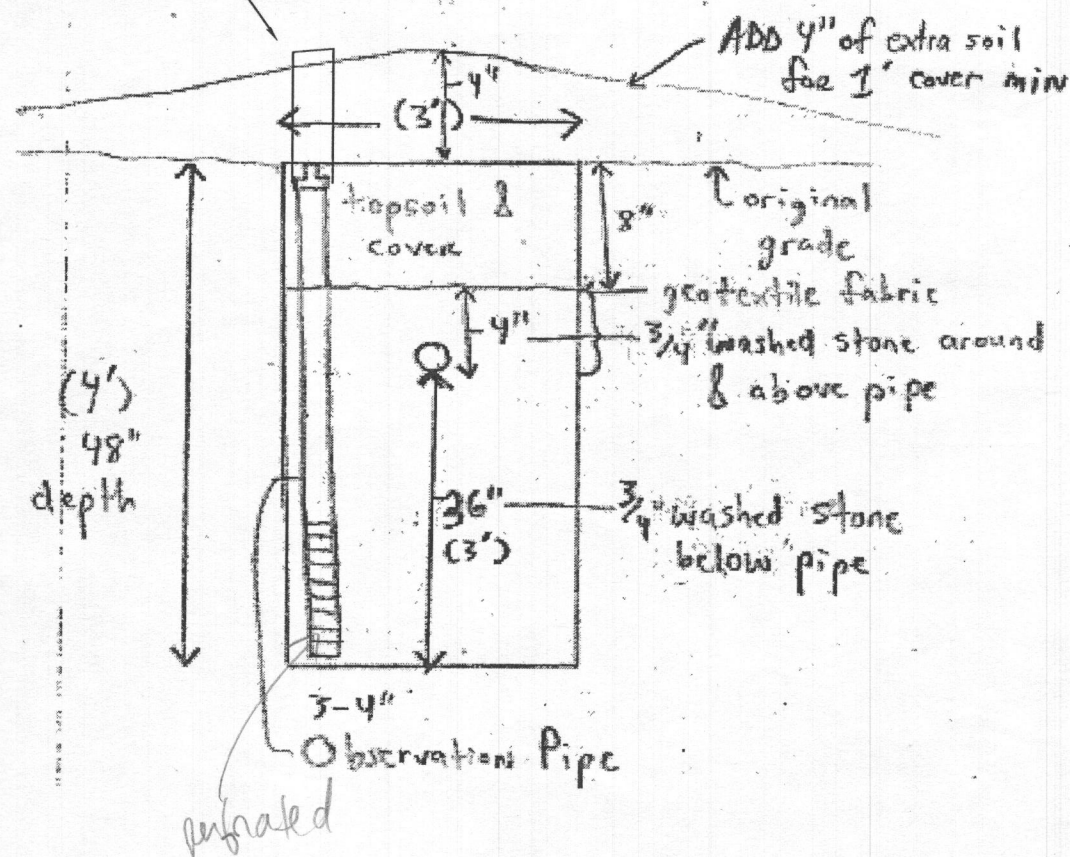 ADD 4" of extra soil
for 1' cover min
4"
(3')
topsoil &
cover
8"
original
grade
geotextile fabric
4"
3/4" washed stone around
& above pipe
(4')
48"
depth
36"
(3')
3/4" washed stone
below pipe
3-4"
Observation Pipe
perforated